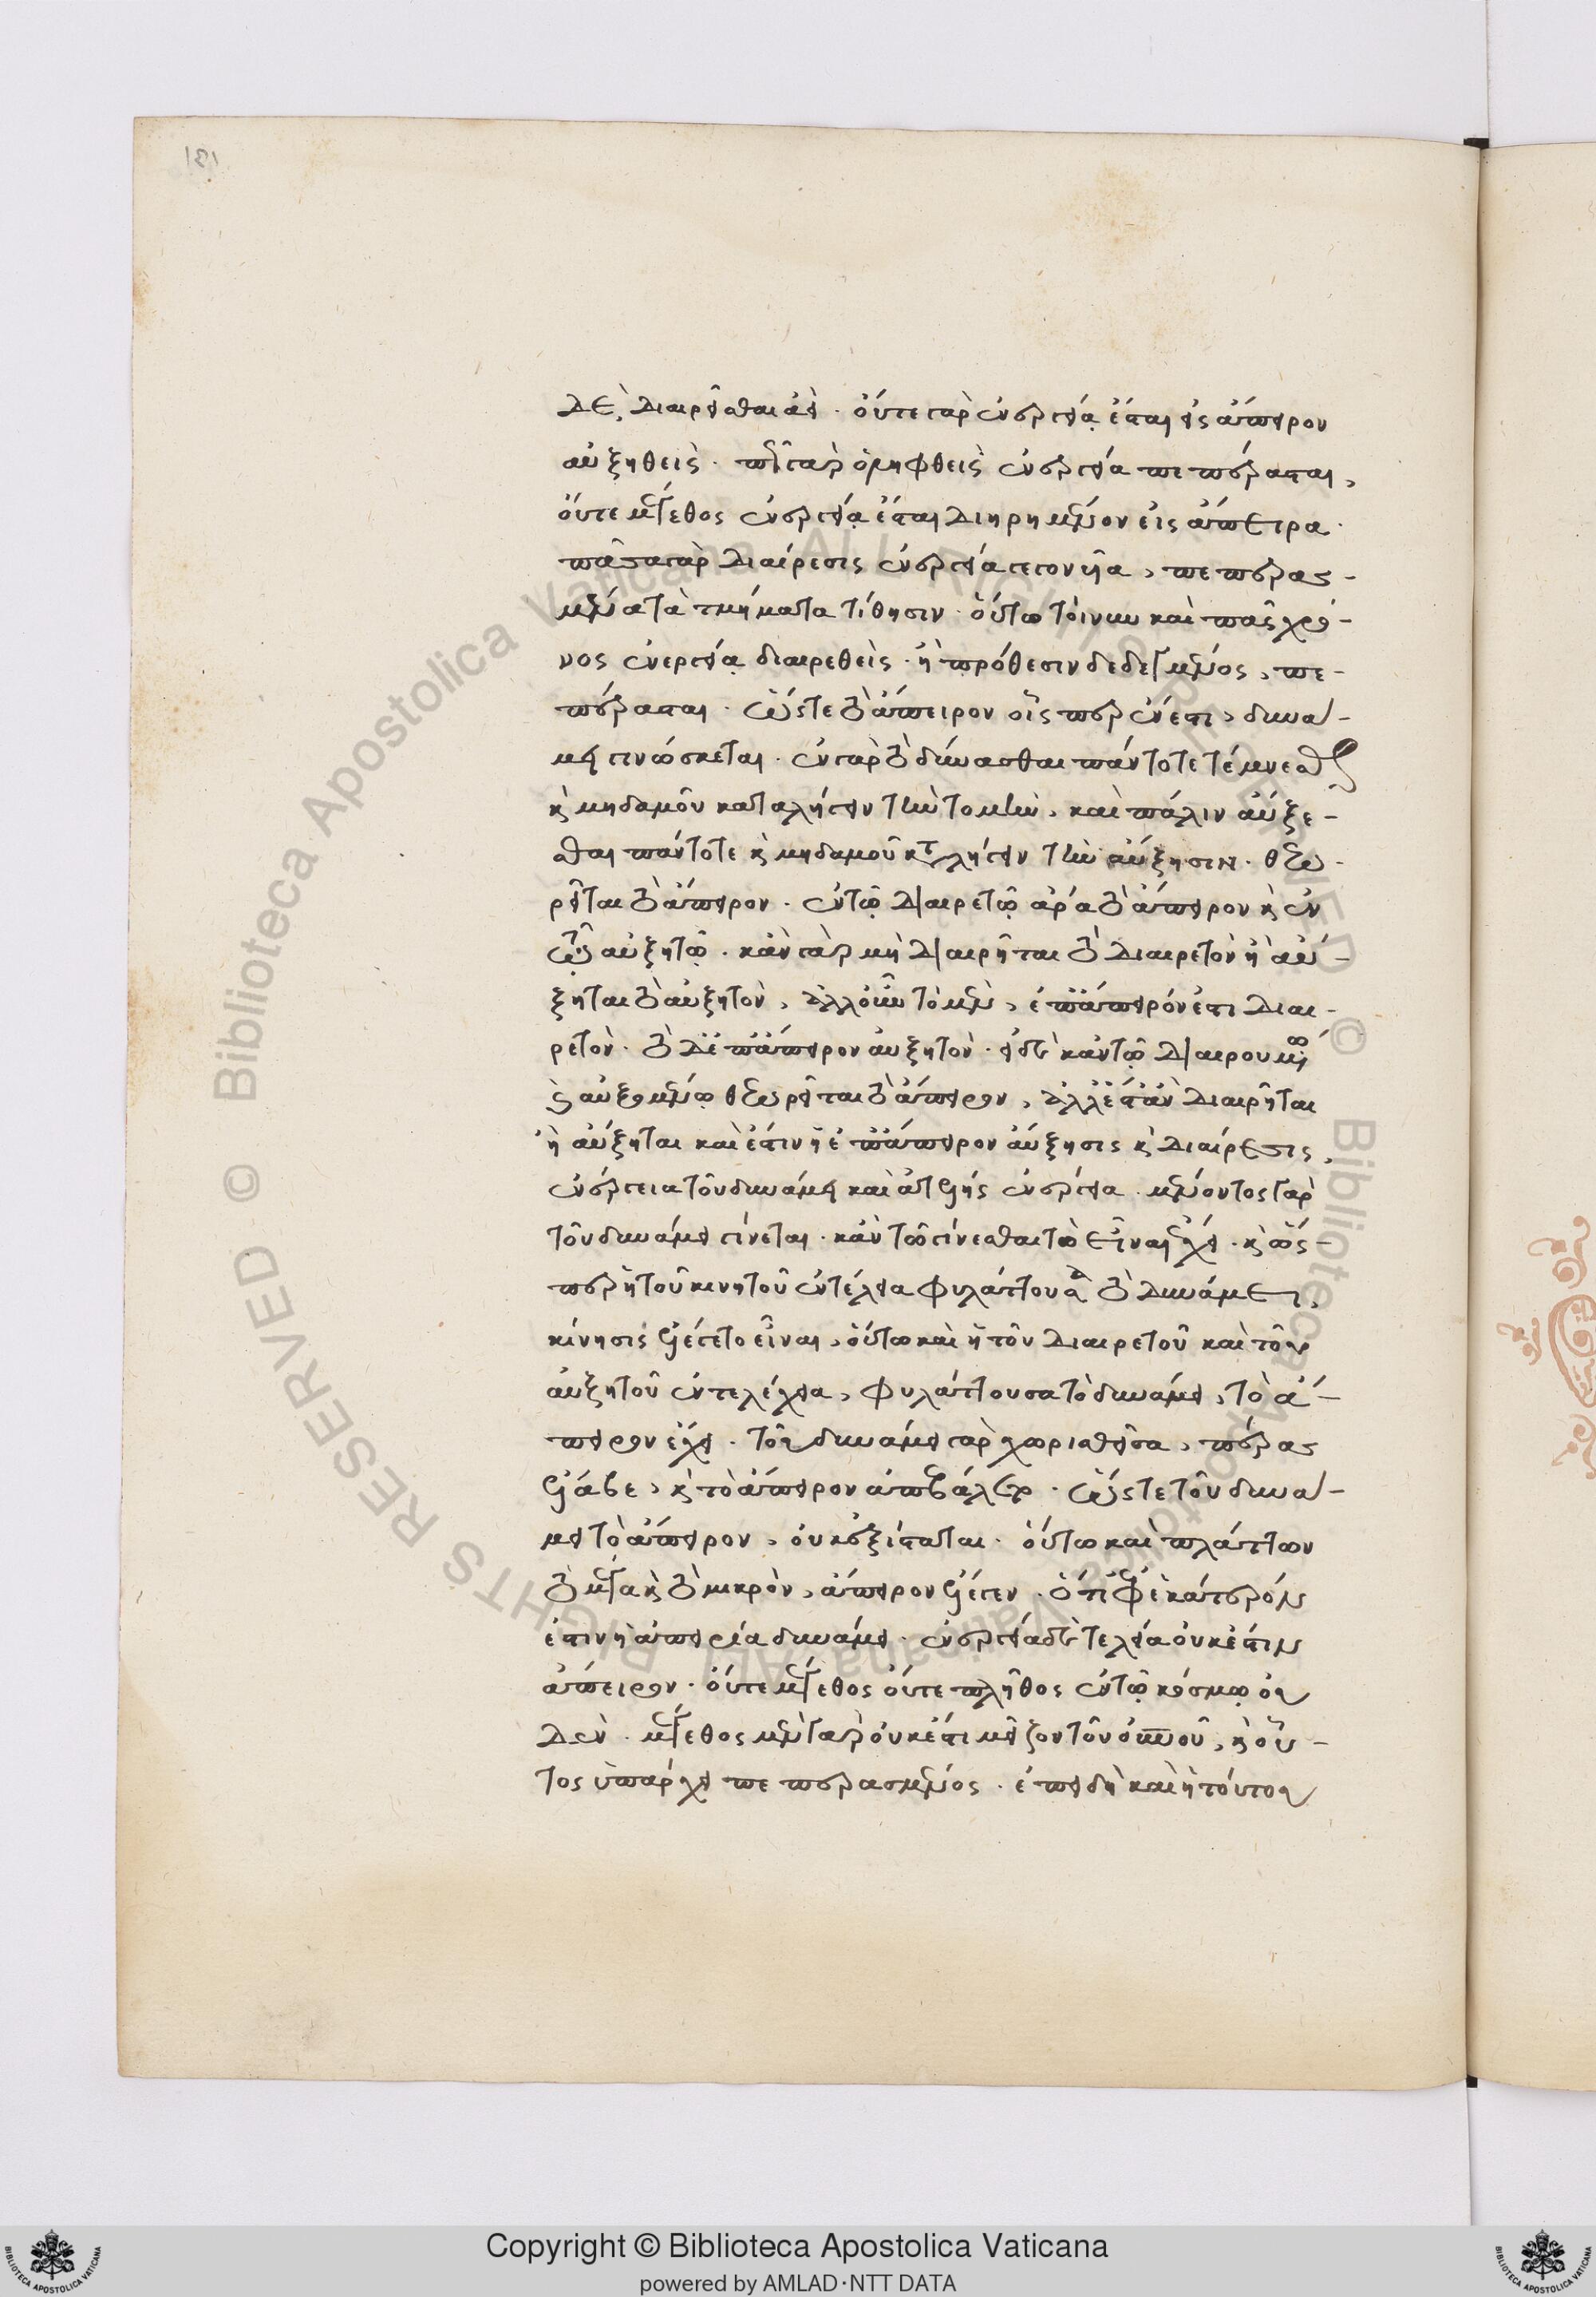 δὲ, διαιρεῖσθαι ἀεί. οὔτε γὰρ ἐνεργείᾳ ἔσται εἰς ἄπειρον
αὐξηθεὶς. πᾶς γὰρ ὁ ληφθεὶς ἐνεργείᾳ πεπέρασται,
οὔτε μέγεθος ἐνεργείᾳ ἔσται διῃρημένον εἰς ἄπειρα.
πᾶσα γὰρ διαίρεσις ἐνεργείᾳ γεγονυῖα, πεπερασ-
μένα τὰ τμήματα τίθησιν. οὕτω τοίνυν καὶ πᾶς χρό-
νος ἐνεργείᾳ διαιρεθεὶς. ἢ πρόθεσιν δεδεγμένος, πε-
πέρασται. ὥστε τὸ ἄπειρον οἷς περ ἔνεστι, δυνά-
μει γινώσκεται. ἐν γὰρ τὸ δύνασθαι πάντοτε τέμνεσθαι
κ μηδαμοῦ καταλήγειν τὴν τομὴν, καὶ πάλιν αὔξε-
σθαι πάντοτε κ μηδαμοῦ καταλήγειν τὴν αὔξησιν. θεω-
ρεῖται τὸ ἄπειρον. ἐν τῷ διαιρετῷ ἄρα τὸ ἄπειρον κ ἐν
τῷ αὐξητῷ. κἂν γὰρ μὴ διαιρῆται τὸ διαιρετὸν ἢ αὔ-
ξηται τὸ αὐξητὸν, ἀλλ' οὖν τὸ μὲν, ἐπ' ἄπειρόν ἐστι διαι-
ρετὸν. τὸ δὲ ἐπ' ἄπειρον αὐξητὸν. εἰ δὲ κἀν τῷ διαιρουμένῳ
κ αὐξομένῳ θεωρεῖται τὸ ἄπειρον, ἀλλ' ἔστ' ἂν διαιρῆται
ἢ αὔξηται καὶ ἔστιν ἡ ἐπ' ἄπειρον αὔξησις κ διαίρεσις,
ἐνέργεια τοῦ δυνάμει καὶ ἀτελὴς ἐνέργεια. μένοντος γὰρ
τοῦ δυνάμει γίνεται. κἀν τῷ γίνεσθαι τὸ εἶναι ἔχει. κ ὥσ-
περ ἡ τοῦ κινητοῦ ἐντελέχεια φυλάττουσα τὸ δυνάμει,
κίνησις ἐλέγετο εἶναι, οὕτω καὶ ἡ τοῦ διαιρετοῦ καὶ τοῦ
αὐξητοῦ ἐντελέχεια, φυλάττουσα τὸ δυνάμει, τὸ ἄ-
πειρον ἔχει. τοῦ δυνάμει γὰρ χωρισθεῖσα, πέρας
ἔλαβε, κ τὸ ἄπειρον ἀπέβαλεν. ὥστε τοῦ δυνά-
μει τὸ ἄπειρον, οὐκ ἐξίσταται. οὕτω καὶ πλάττων
τὸ μέγα κ τὸ μικρὸν, ἄπειρον ἔλεγεν. ὅτι ἐφ' ἑκάτερόν
ἐστιν ἡ ἀπειρία δυνάμει. ἐνεργείᾳ δὲ τελείᾳ οὐκ ἔστιν
ἄπειρον. οὔτε μέγεθος οὔτε πλῆθος ἐν τῷ κόσμῳ οὐ
δὲν. μέγεθος μὲν γὰρ οὐκ ἔστι μεῖζον τοῦ οὐνοῦ, κ οὗ-
τος ὑπάρχει πεπερασμένος. ἐπειδὴ καὶ ἡ τούτου
Copyright © Biblioteca Apostolica Vaticana
powered by AMLAD·NTT DATA